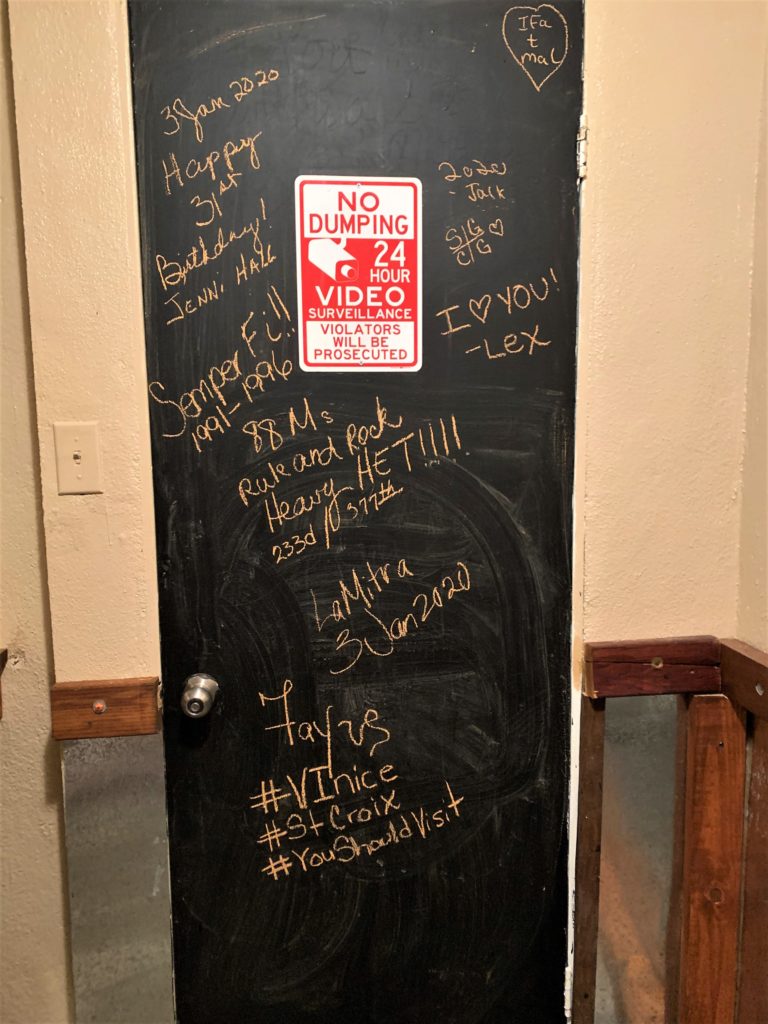 3 Jan 2020
Happy
31st
Birthday!
JENNI HALL
Semper Fi!!
1991-1996
IFa
t
mal
NO
DUMPING
24
HOUR
VIDEO
SURVEILLANCE
VIOLATORS
WILL BE
PROSECUTED
2020
- Jack
S|G ♡
C|G
I ♡ YOU!
-Lex
88 Ms
Rule and Rock
Heavy HET!!!!
233d / 377th
LaMitra
3 Jan 2020
#VInice
#StCroix
#YouShouldVisit